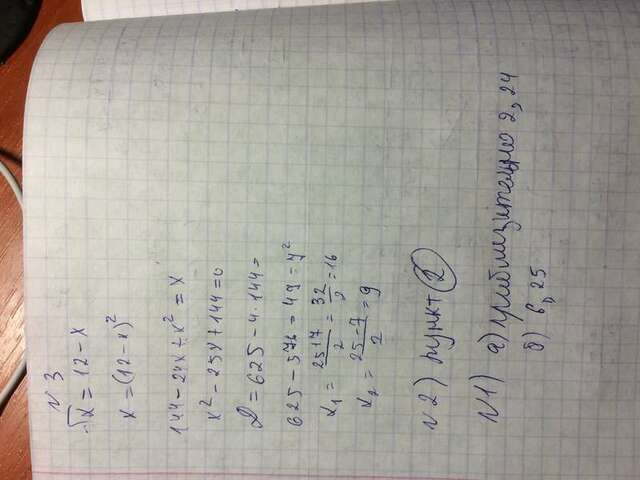 N 3
√x = 12 - x
x = (12 - x)²
144 - 24x + x² = x
x² - 25x + 144 = 0
D = 625 - 4 · 144 =
625 - 576 = 49 = 7²
x₁ = 25 + 7 / 2 = 32 / 2 = 16
x₂ = 25 - 7 / 2 = 9
N 2) пункт 2
N 1) а) приблизительно 2,24
б) 6,25